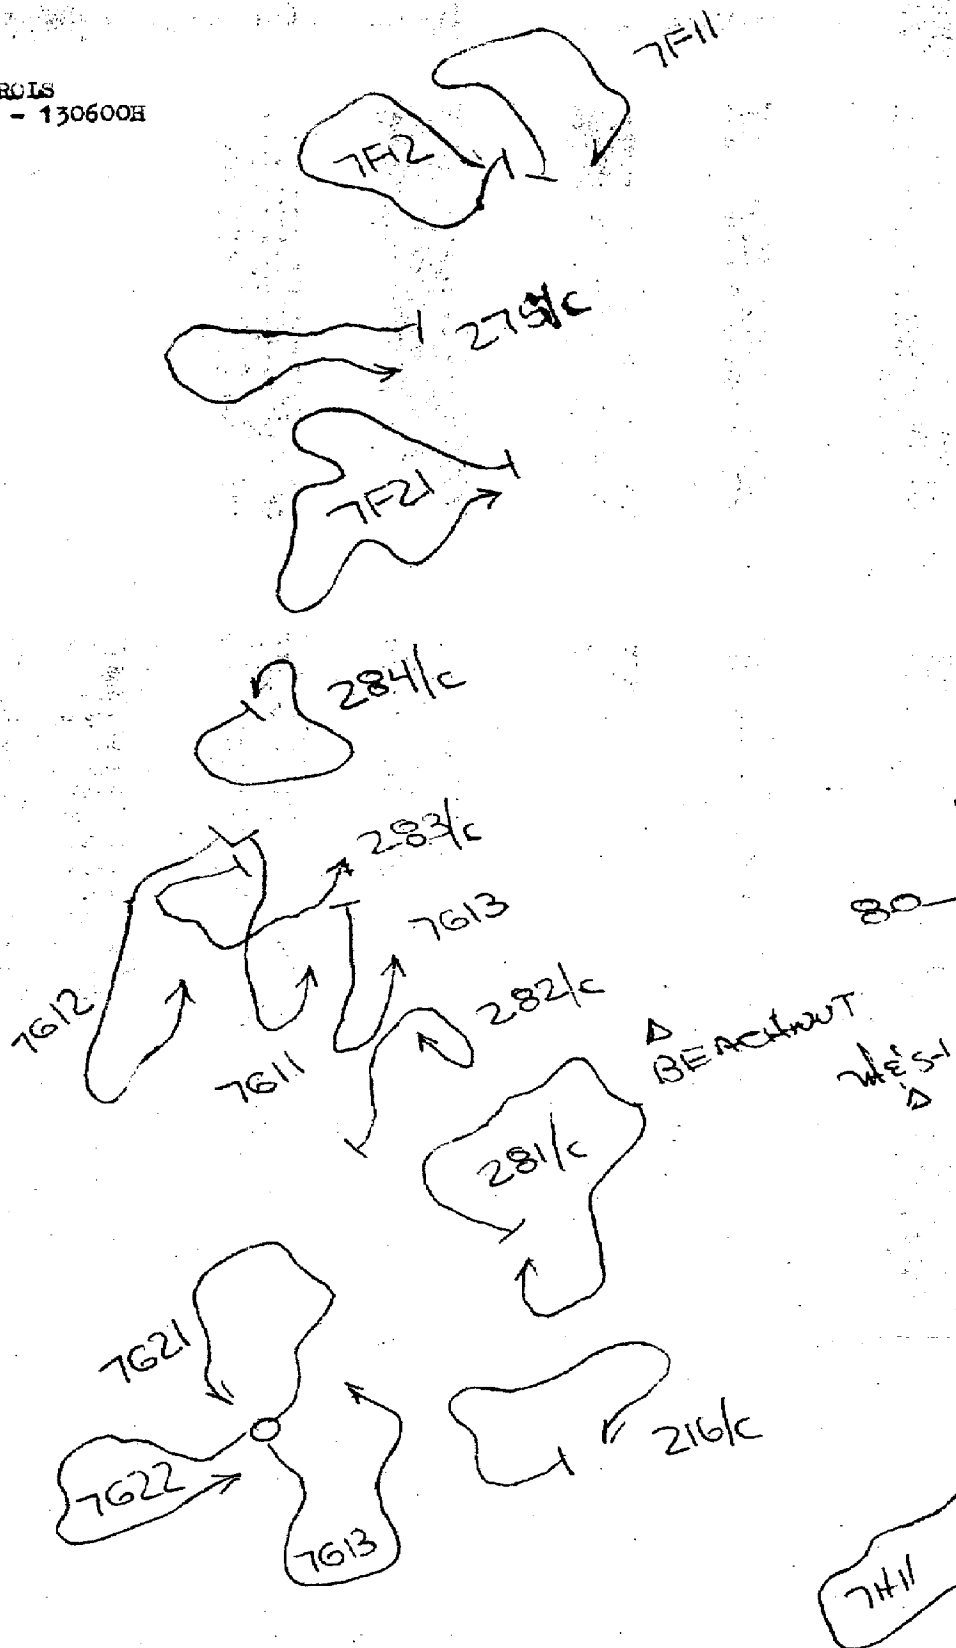 ROLS
- 130600H
7F11
7F12
7F21
284/c
283/c
7G13
80
7G12
282/c
7G11
BEACHNUT
281/c
7G21
216/c
7G22
7G13
7H11